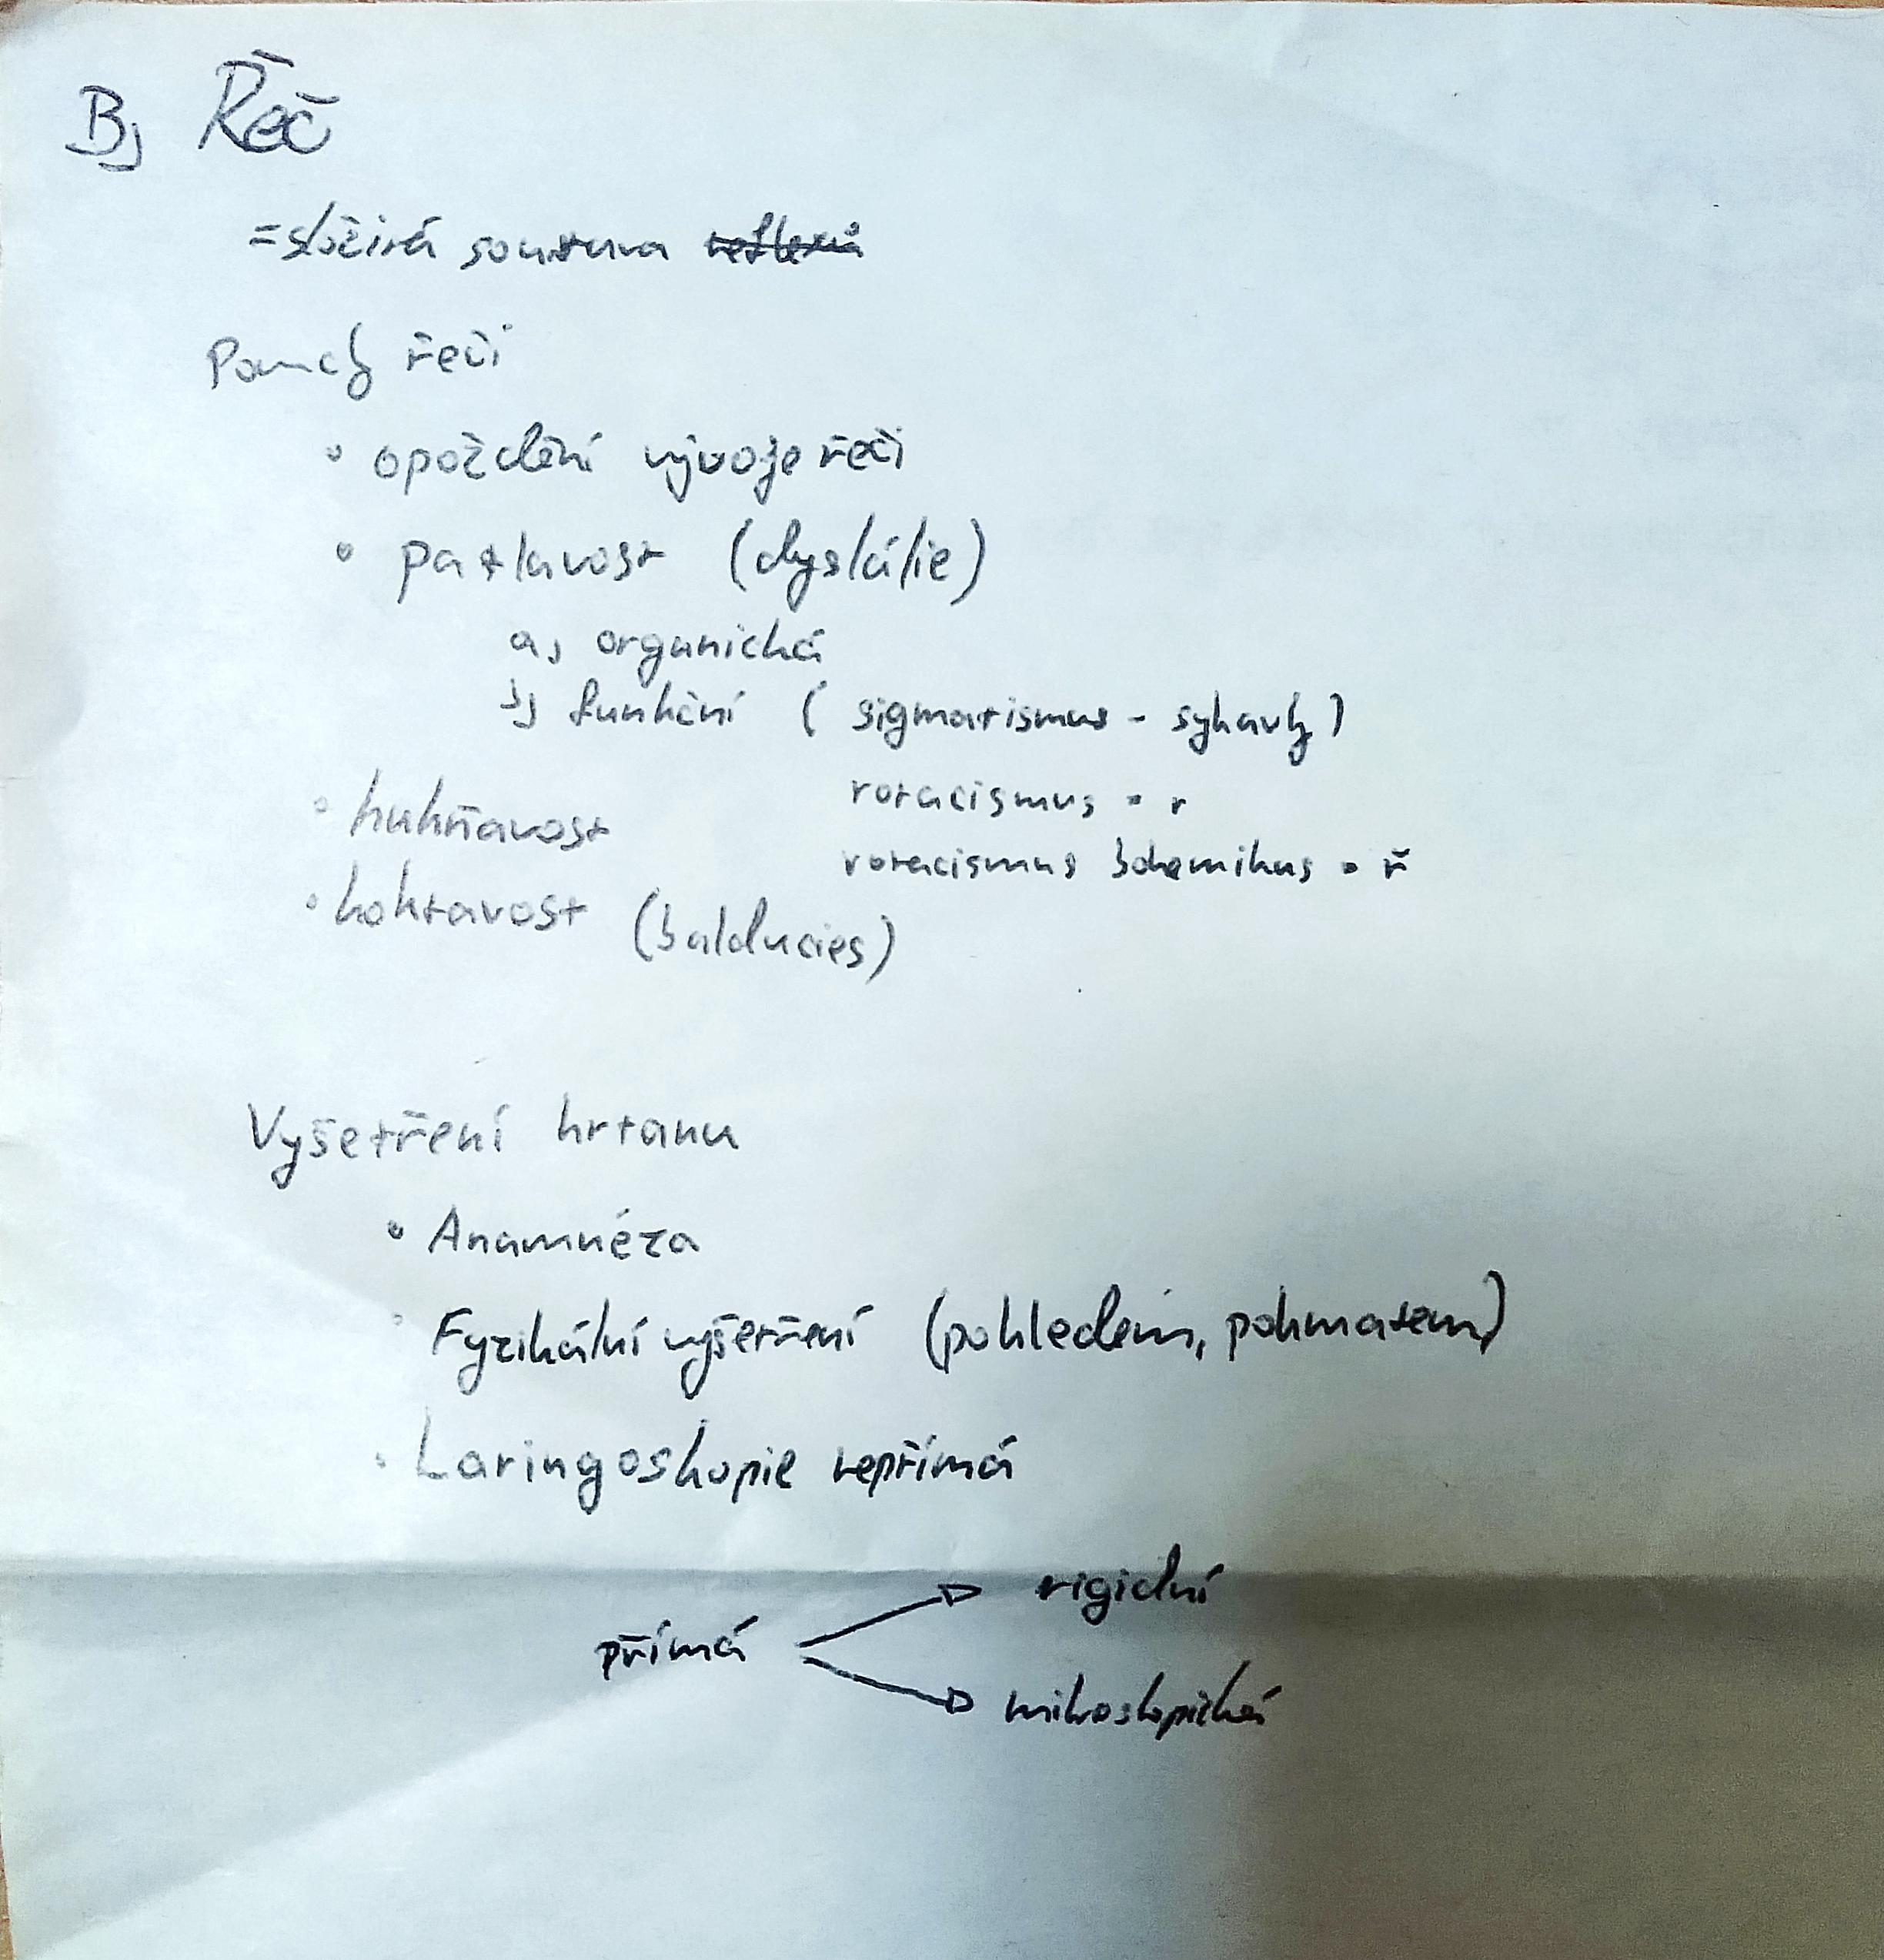 B) Řeč
=složitá soustava reflexů
Poruchy řeči
• opoždění vývoje řeči
• patlavost (dyslálie)
a) organická
b) funkční ( sigmatismus - sykavky )
rotacismus - r
• huhňavost
rotacismus bohemikus - ř
• koktavost (balducies)
Vyšetření hrtanu
• Anamnéza
• Fyzikální vyšetření (pohledem, pohmatem)
• Laringoskopie nepřímá
rigidní
přímá
mikroskopická